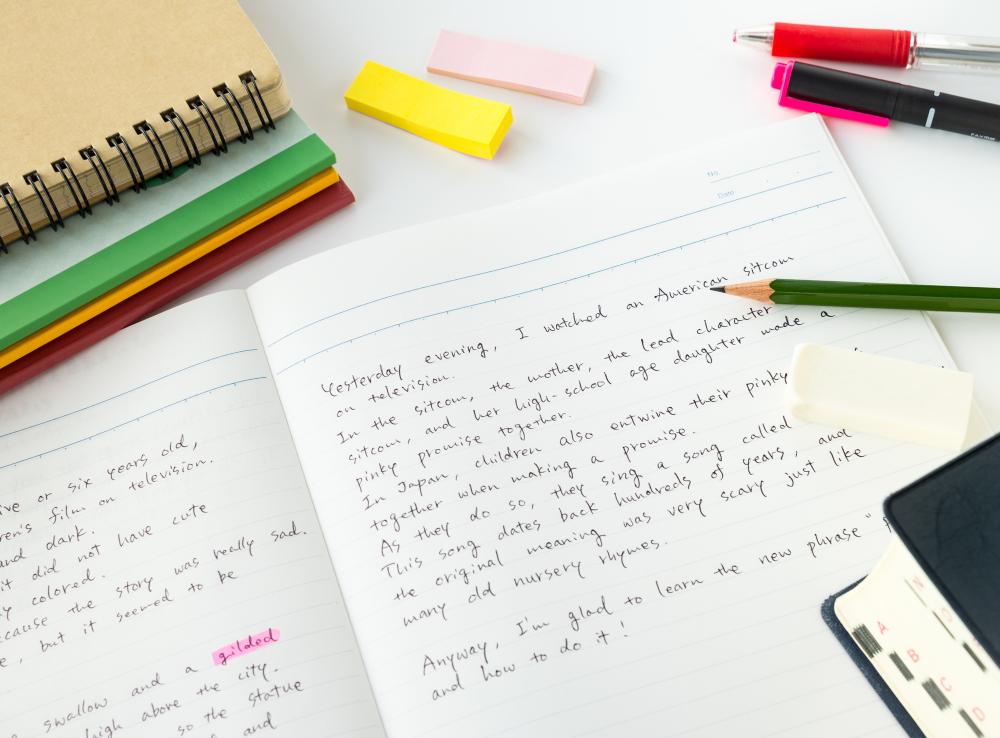 ive or six years old,
ren's film on television.
and dark.
it did not have cute
y colored.
ecause the story was really sad.
e, but it seemed to be
swallow and a gilded
high above the city.
so the statue
and
No.
Date
Yesterday evening, I watched an American sitcom
on television.
In the sitcom, the mother, the lead character
sitcom, and her high-school age daughter made a
pinky promise together.
In Japan, children also entwine their pinky
together when making a promise.
As they do so, they sing a song called
This song dates back hundreds of years, and
the original meaning was very scary just like
many old nursery rhymes.
Anyway, I'm glad to learn the new phrase "
and how to do it!
N
A
B
C
D